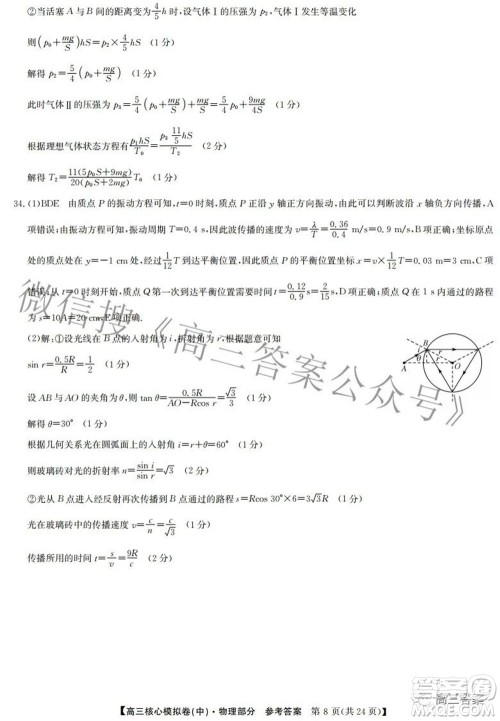 ②当活塞 A 与 B 间的距离变为 4/5 h 时，设气体Ⅰ的压强为 p₂，气体Ⅰ发生等温变化
则(p₀+mg/S)hS=p₂×4/5 hS （1分）
解得 p₂=5/4(p₀+mg/S) （1分）
此时气体Ⅱ的压强为 p₃=5/4(p₀+mg/S)+mg/S=5/4 p₀+9mg/4S （1分）
根据理想气体状态方程有 p₁hS/T₀=p₃ 11/5 hS/T₂ （2分）
解得 T₂=11(5p₀S+9mg)/20(p₀S+2mg) T₀ （1分）
34. (1)BDE 由质点 P 的振动方程可知，t=0 时刻，质点 P 正沿 y 轴正方向振动，由此可以判断波沿 x 轴负方向传播，A
项错误；由振动方程可知，振动周期 T=0.4 s，因此波传播的速度为 v=λ/T=0.36/0.4 m/s=0.9 m/s，B 项正确；坐标原点
处的质点处在 y=−1 cm 处，经过 1/12 T 到达平衡位置，因此质点 P 的平衡位置坐标为 1/12 T=0.03 m=3 cm，C 项
错误；从 t=0 时刻开始，质点 Q 第一次到达平衡位置需要时间 t=0.12/0.9 s=2/15 s，D 项正确；质点 Q 在 1 s 内通过的路程
为 s=10A=20 cm，E 项正确.
(2)解：①设光线在 B 点的入射角为 i，折射角为 r，根据题意可知
sin r=0.5R/R=1/2 （1分）
设 AB 与 AO 的夹角为 θ，则 tan θ=0.5R/AO−Rcos r=√3/3 （1分）
解得 θ=30° （1分）
根据几何关系光在圆弧面上的入射角 i=r+θ=60° （1分）
则玻璃砖对光的折射率 n=sin i/sin r=√3 （1分）
A
B
O
i
r
θ
②光从 B 点进入经反射再次传播到 B 点通过的路程 s=Rcos 30°×6=3√3 R （2分）
光在玻璃砖中的传播速度 v=c/n=c/√3 （1分）
传播所用的时间 t=s/v=9R/c （2分）
微信搜《高三答案公众号》
【高三核心模拟卷(中)·物理部分 参考答案 第 8 页(共 24 页)】
高三答案